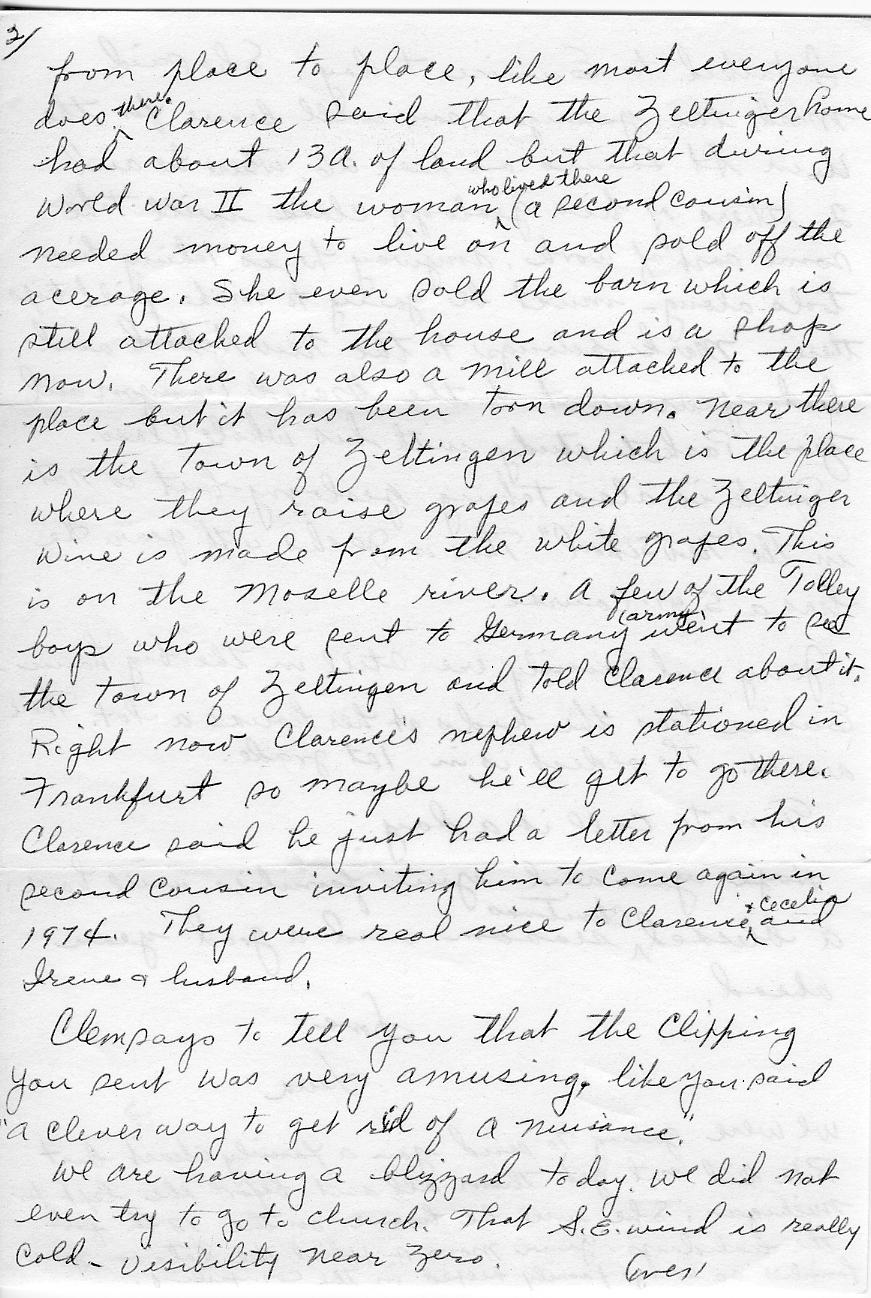 2/
from place to place, like most everyone
does there. Clarence said that the Zeltinger home
had about 13a. of land but that during
World War II the woman who lived there (a second cousin)
needed money to live on and sold off the
acerage. She even sold the barn which is
still attached to the house and is a shop
now. There was also a mill attached to the
place but it has been torn down. Near there
is the town of Zeltingen which is the place
where they raise grapes and the Zeltinger
wine is made from the white grapes. This
is on the Moselle river. A few of the Tolley
boys who were sent to Germany (army) went to see
the town of Zeltingen and told Clarence about it.
Right now Clarence's nephew is stationed in
Frankfurt so maybe he'll get to go there.
Clarence said he just had a letter from his
second cousin inviting him to come again in
1974. They were real nice to Clarence & Cecelia and
Irene & husband.
Clem says to tell you that the clipping
you sent was very amusing, like you said
"a clever way to get rid of a nuisance."
We are having a blizzard today. We did not
even try to go to church. That S.E. wind is really
cold - visibility near zero.
(over)